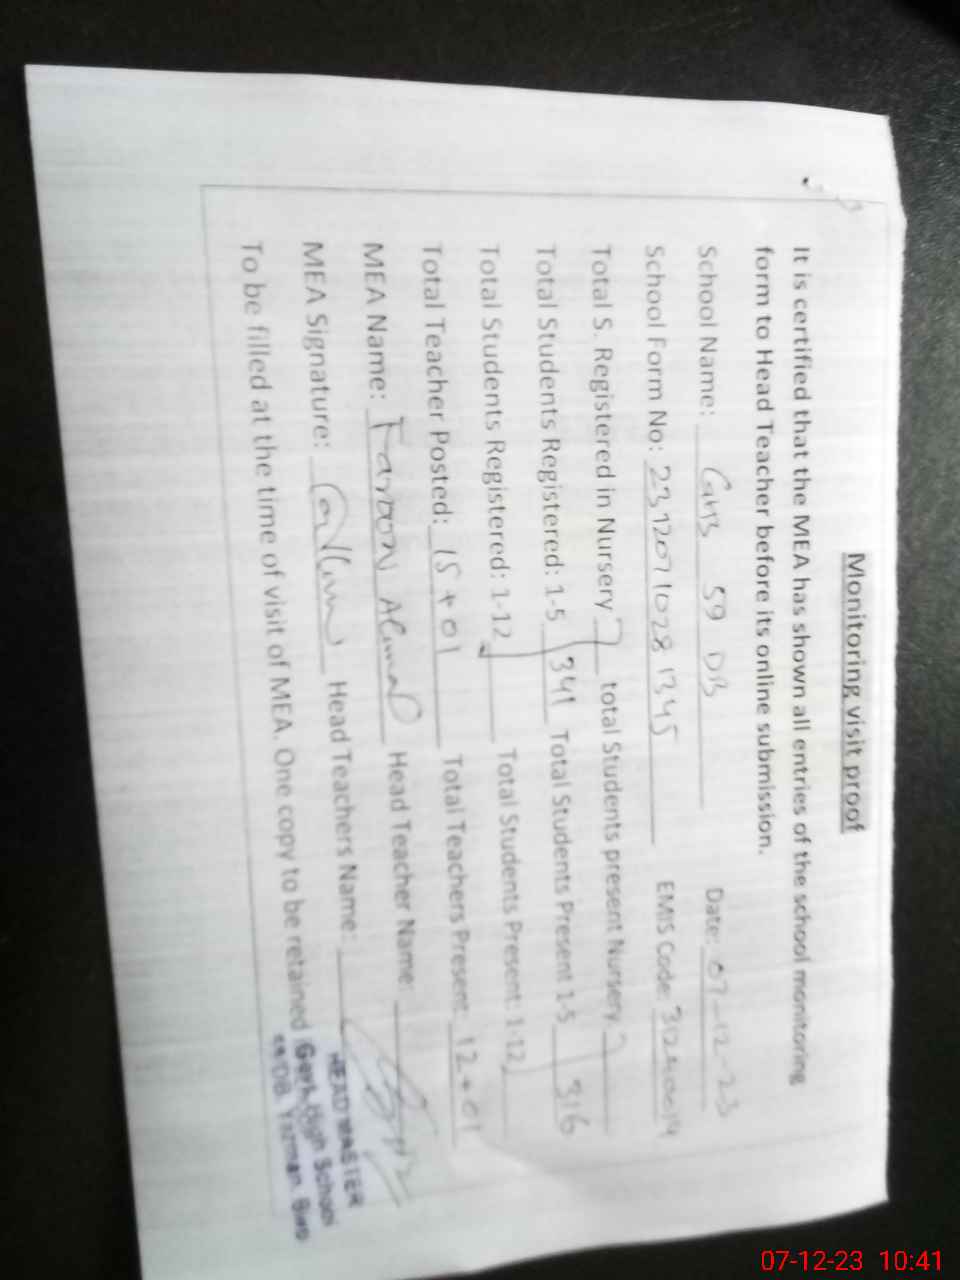 Monitoring visit proof
It is certified that the MEA has shown all entries of the school monitoring
form to Head Teacher before its online submission.
School Name: GHS 59 DB Date: 07-12-23
School Form No: 23120710281345 EMIS Code:
Total S. Registered in Nursery total Students present Nursery
Total Students Registered: 1-5 341 Total Students Present 1-5 316
Total Students Registered: 1-12 Total Students Present: 1-12
Total Teacher Posted: 15+01 Total Teachers Present: 12+01
MEA Name: Farooq Ahmad Head Teacher Name:
MEA Signature: Head Teachers Name:
To be filled at the time of visit of MEA. One copy to be retained
HEADMASTER
Govt. High School
59/DB Yazman, Bwp
07-12-23 10:41